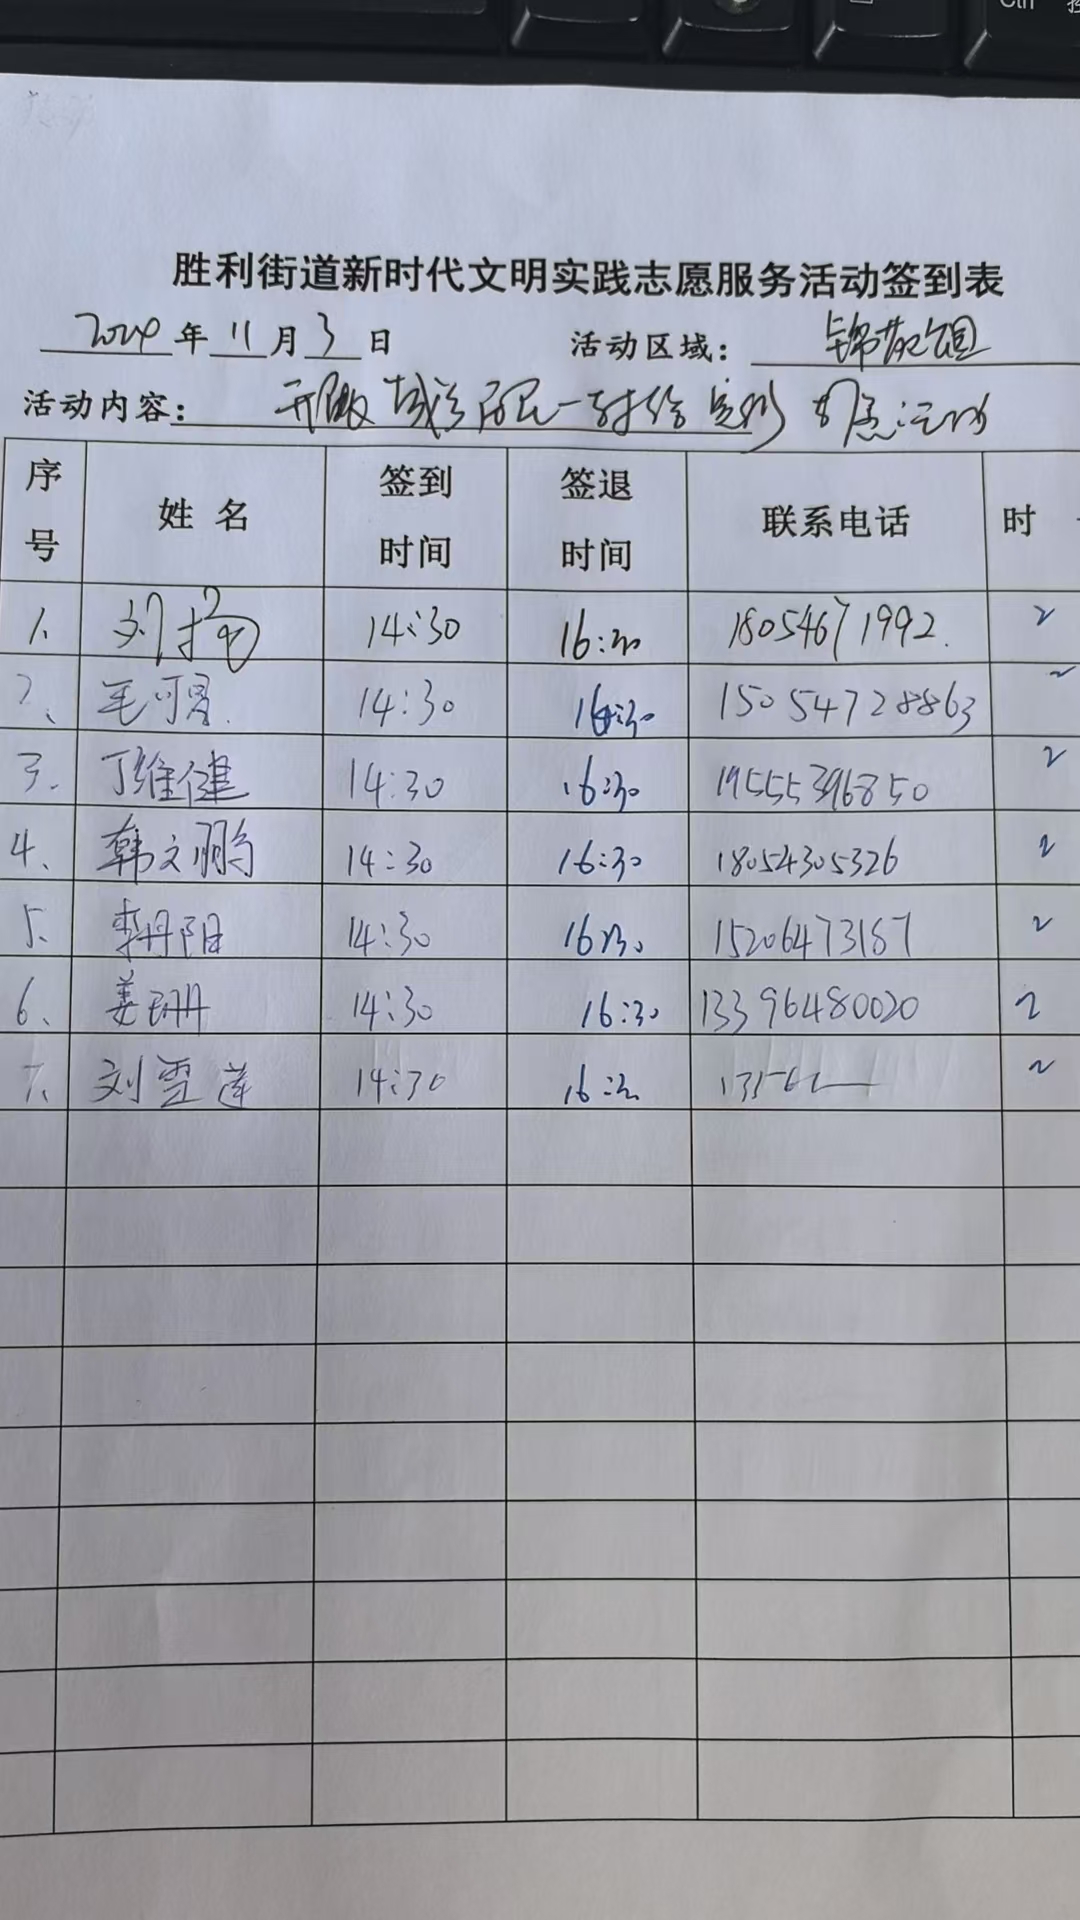 胜利街道新时代文明实践志愿服务活动签到表
2024年11月3日 活动区域：锦苑
活动内容：开展 居民一对 活动
序号 姓名 签到时间 签退时间 联系电话 时
1、 刘扬 14:30 16:30 18054671992. 2
2、 毛可 14:30 16:30 15054728863 2
3. 丁维健 14:30 16:30 19555396850 2
4、 韩文鹏 14:30 16:30 18054305326 2
5、 李丹阳 14:30 16:30 15206473187 2
6、 姜珊 14:30 16:30 13396480020 2
7、 刘雪莲 14:30 16:30 2